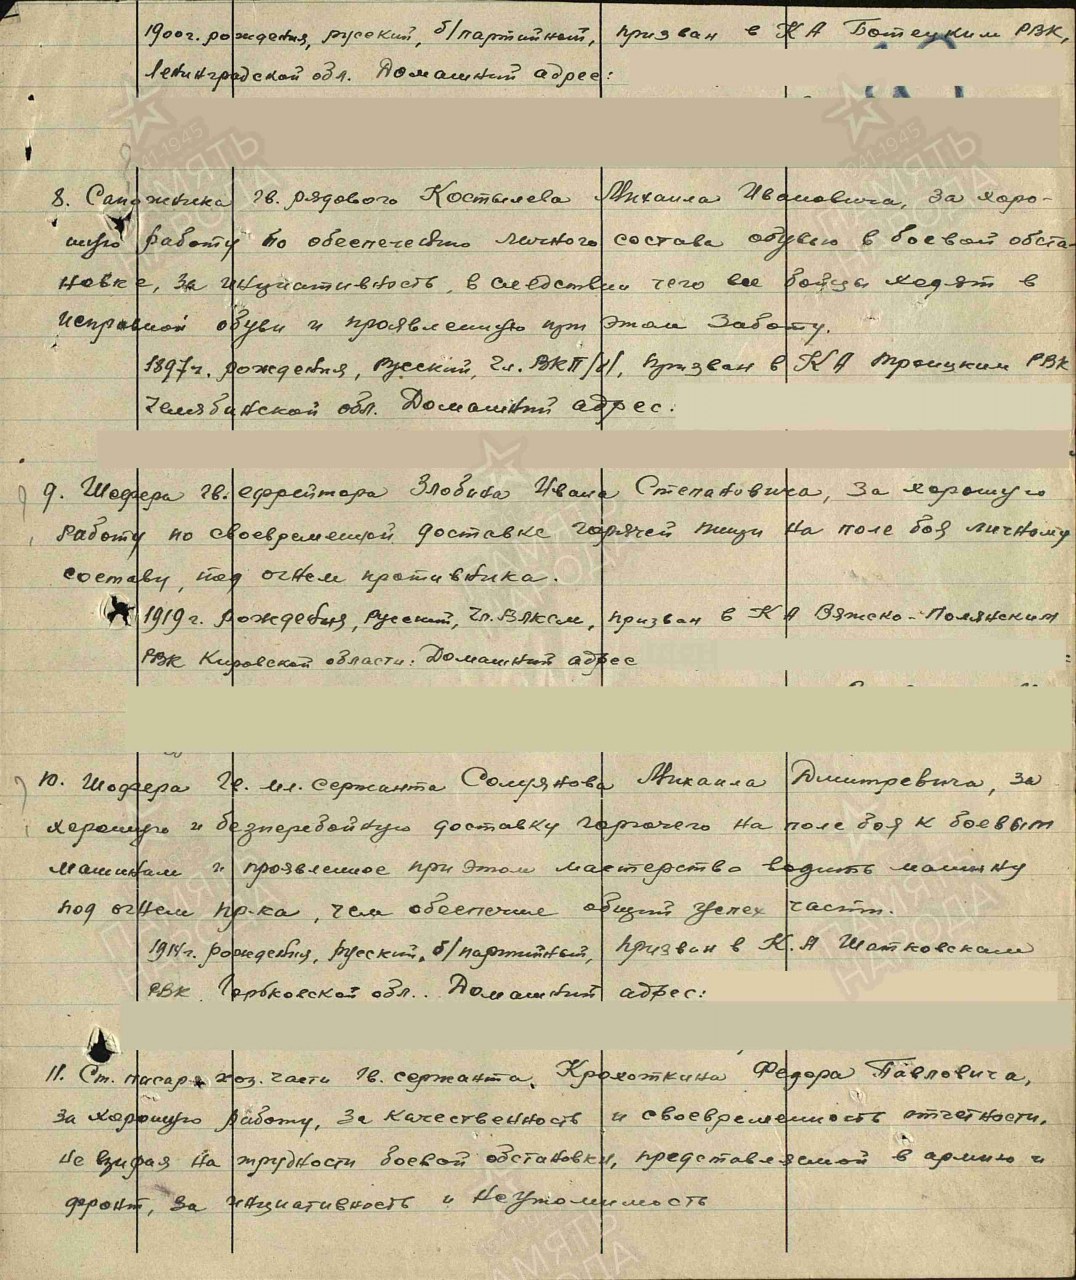 1900 г. рождения, русский, б/партийный, призван в КА Батецким РВК,
Ленинградской обл. Домашний адрес:
8. Сапожника гв. рядового Костылева Михаила Ивановича, за хоро-
шую работу по обеспечению личного состава обувью в боевой обста-
новке, за инциативность, в следствии чего все бойцы ходят в
исправной обуви и проявленную при этом заботу.
1897 г. рождения, Русский, Чл. ВКП/б/, призван в КА Троицким РВК
Челябинской обл. Домашний адрес:
9. Шофера гв. ефрейтора Злобина Ивана Степановича, за хорошую
работу по своевременной доставке горячей пищи на поле боя личному
составу, под огнем противника.
1919 г. рождения, Русский, Чл. ВЛКСМ, призван в КА Вяжско-Полянским
РВК Кировской области: Домашний адрес
10. Шофера Гв. мл. сержанта Михаила Дмитревича, за
хорошую и безперебойную доставку горючего на поле боя к боевым
машинам и проявленное при этом мастерство водить машину
под огнем пр-ка, чем обеспечил общий успех части.
1914 г. рождения, русский, б/партийный, призван в К.А Шатковским
РВК Горьковской обл.. Домашний адрес:
11. Ст. писаря хоз. части Гв. сержанта, Крохоткина Федора Павловича,
за хорошую работу, за качественность и своевременность отчетности,
не взирая на трудности боевой обстановки, представляемой в армию и
фронт, за инциативность и неутомимость
ПАМЯТЬ
НАРОДА